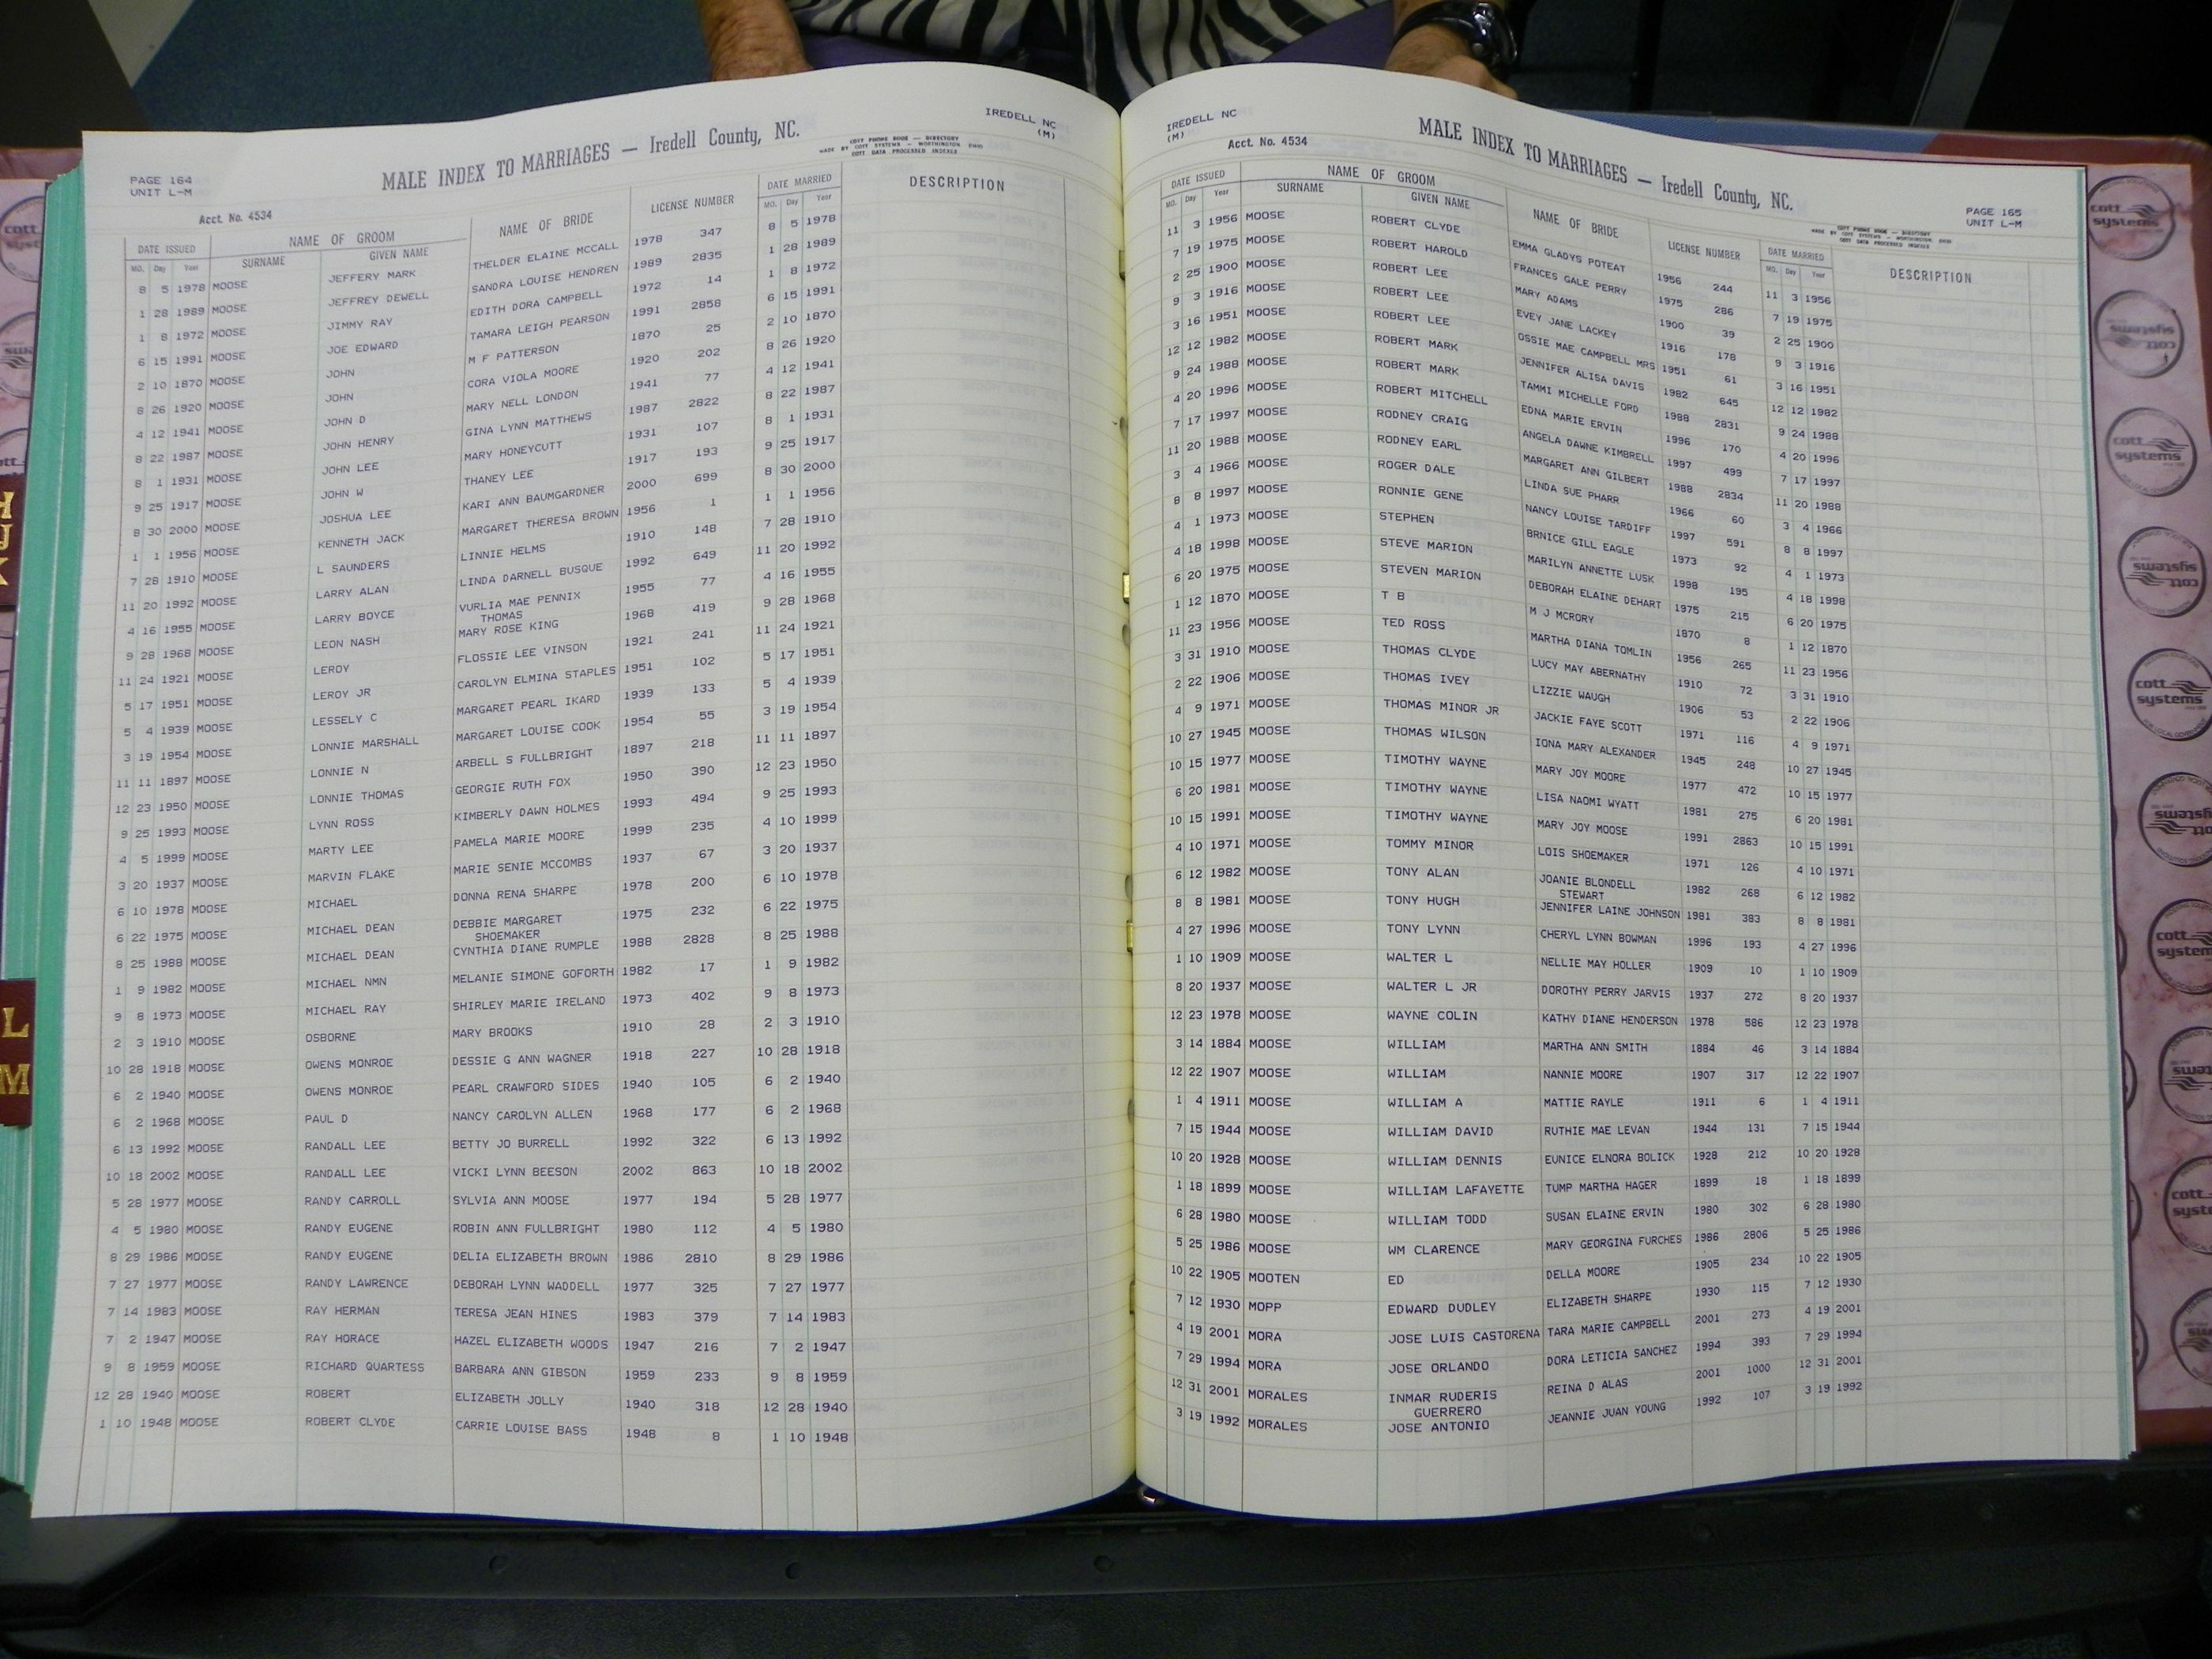 IREDELL NC
(M)
MALE INDEX TO MARRIAGES — Iredell County, NC.
COTT PHONE BOOK — DIRECTORY
MADE BY COTT SYSTEMS — WORTHINGTON, OHIO
COTT DATA PROCESSED INDEXES
PAGE 164
UNIT L-M
Acct. No. 4534
DATE ISSUED NAME OF GROOM NAME OF BRIDE LICENSE NUMBER DATE MARRIED DESCRIPTION
MO. Day Year SURNAME GIVEN NAME MO. Day Year
8 5 1978 MOOSE JEFFERY MARK THELDER ELAINE MCCALL 1978 347 8 5 1978
1 28 1989 MOOSE JEFFREY DEWELL SANDRA LOUISE HENDREN 1989 2835 1 28 1989
1 8 1972 MOOSE JIMMY RAY EDITH DORA CAMPBELL 1972 14 1 8 1972
6 15 1991 MOOSE JOE EDWARD TAMARA LEIGH PEARSON 1991 2858 6 15 1991
2 10 1870 MOOSE JOHN M F PATTERSON 1870 25 2 10 1870
8 26 1920 MOOSE JOHN CORA VIOLA MOORE 1920 202 8 26 1920
4 12 1941 MOOSE JOHN D MARY NELL LONDON 1941 77 4 12 1941
8 22 1987 MOOSE JOHN HENRY GINA LYNN MATTHEWS 1987 2822 8 22 1987
8 1 1931 MOOSE JOHN LEE MARY HONEYCUTT 1931 107 8 1 1931
9 25 1917 MOOSE JOHN W THANEY LEE 1917 193 9 25 1917
8 30 2000 MOOSE JOSHUA LEE KARI ANN BAUMGARDNER 2000 699 8 30 2000
1 1 1956 MOOSE KENNETH JACK MARGARET THERESA BROWN 1956 1 1 1 1956
7 28 1910 MOOSE L SAUNDERS LINNIE HELMS 1910 148 7 28 1910
11 20 1992 MOOSE LARRY ALAN LINDA DARNELL BUSQUE 1992 649 11 20 1992
4 16 1955 MOOSE LARRY BOYCE VURLIA MAE PENNIX 1955 77 4 16 1955
THOMAS
9 28 1968 MOOSE LEON NASH MARY ROSE KING 1968 419 9 28 1968
11 24 1921 MOOSE LEROY FLOSSIE LEE VINSON 1921 241 11 24 1921
5 17 1951 MOOSE LEROY JR CAROLYN ELMINA STAPLES 1951 102 5 17 1951
5 4 1939 MOOSE LESSELY C MARGARET PEARL IKARD 1939 133 5 4 1939
3 19 1954 MOOSE LONNIE MARSHALL MARGARET LOUISE COOK 1954 55 3 19 1954
11 11 1897 MOOSE LONNIE N ARBELL S FULLBRIGHT 1897 218 11 11 1897
12 23 1950 MOOSE LONNIE THOMAS GEORGIE RUTH FOX 1950 390 12 23 1950
9 25 1993 MOOSE LYNN ROSS KIMBERLY DAWN HOLMES 1993 494 9 25 1993
4 5 1999 MOOSE MARTY LEE PAMELA MARIE MOORE 1999 235 4 10 1999
3 20 1937 MOOSE MARVIN FLAKE MARIE SENIE MCCOMBS 1937 67 3 20 1937
6 10 1978 MOOSE MICHAEL DONNA RENA SHARPE 1978 200 6 10 1978
6 22 1975 MOOSE MICHAEL DEAN DEBBIE MARGARET 1975 232 6 22 1975
SHOEMAKER
8 25 1988 MOOSE MICHAEL DEAN CYNTHIA DIANE RUMPLE 1988 2828 8 25 1988
1 9 1982 MOOSE MICHAEL NMN MELANIE SIMONE GOFORTH 1982 17 1 9 1982
9 8 1973 MOOSE MICHAEL RAY SHIRLEY MARIE IRELAND 1973 402 9 8 1973
2 3 1910 MOOSE OSBORNE MARY BROOKS 1910 28 2 3 1910
10 28 1918 MOOSE OWENS MONROE DESSIE G ANN WAGNER 1918 227 10 28 1918
6 2 1940 MOOSE OWENS MONROE PEARL CRAWFORD SIDES 1940 105 6 2 1940
6 2 1968 MOOSE PAUL D NANCY CAROLYN ALLEN 1968 177 6 2 1968
6 13 1992 MOOSE RANDALL LEE BETTY JO BURRELL 1992 322 6 13 1992
10 18 2002 MOOSE RANDALL LEE VICKI LYNN BEESON 2002 863 10 18 2002
5 28 1977 MOOSE RANDY CARROLL SYLVIA ANN MOOSE 1977 194 5 28 1977
4 5 1980 MOOSE RANDY EUGENE ROBIN ANN FULLBRIGHT 1980 112 4 5 1980
8 29 1986 MOOSE RANDY EUGENE DELIA ELIZABETH BROWN 1986 2810 8 29 1986
7 27 1977 MOOSE RANDY LAWRENCE DEBORAH LYNN WADDELL 1977 325 7 27 1977
7 14 1983 MOOSE RAY HERMAN TERESA JEAN HINES 1983 379 7 14 1983
7 2 1947 MOOSE RAY HORACE HAZEL ELIZABETH WOODS 1947 216 7 2 1947
9 8 1959 MOOSE RICHARD QUARTESS BARBARA ANN GIBSON 1959 233 9 8 1959
12 28 1940 MOOSE ROBERT ELIZABETH JOLLY 1940 318 12 28 1940
1 10 1948 MOOSE ROBERT CLYDE CARRIE LOUISE BASS 1948 8 1 10 1948
IREDELL NC
(M)
Acct. No. 4534
MALE INDEX TO MARRIAGES — Iredell County, NC.
PAGE 165
UNIT L-M
COTT PHONE BOOK — DIRECTORY
MADE BY COTT SYSTEMS — WORTHINGTON, OHIO
COTT DATA PROCESSED INDEXES
DATE ISSUED NAME OF GROOM NAME OF BRIDE LICENSE NUMBER DATE MARRIED DESCRIPTION
MO. Day Year SURNAME GIVEN NAME MO. Day Year
11 3 1956 MOOSE ROBERT CLYDE EMMA GLADYS POTEAT 1956 244 11 3 1956
7 19 1975 MOOSE ROBERT HAROLD FRANCES GALE PERRY 1975 286 7 19 1975
2 25 1900 MOOSE ROBERT LEE MARY ADAMS 1900 39 2 25 1900
9 3 1916 MOOSE ROBERT LEE EVEY JANE LACKEY 1916 178 9 3 1916
3 16 1951 MOOSE ROBERT LEE OSSIE MAE CAMPBELL MRS 1951 61 3 16 1951
12 12 1982 MOOSE ROBERT MARK JENNIFER ALISA DAVIS 1982 645 12 12 1982
9 24 1988 MOOSE ROBERT MARK TAMMI MICHELLE FORD 1988 2831 9 24 1988
4 20 1996 MOOSE ROBERT MITCHELL EDNA MARIE ERVIN 1996 170 4 20 1996
7 17 1997 MOOSE RODNEY CRAIG ANGELA DAWNE KIMBRELL 1997 499 7 17 1997
11 20 1988 MOOSE RODNEY EARL MARGARET ANN GILBERT 1988 2834 11 20 1988
3 4 1966 MOOSE ROGER DALE LINDA SUE PHARR 1966 60 3 4 1966
8 8 1997 MOOSE RONNIE GENE NANCY LOUISE TARDIFF 1997 591 8 8 1997
4 1 1973 MOOSE STEPHEN BRNICE GILL EAGLE 1973 92 4 1 1973
4 18 1998 MOOSE STEVE MARION MARILYN ANNETTE LUSK 1998 195 4 18 1998
6 20 1975 MOOSE STEVEN MARION DEBORAH ELAINE DEHART 1975 215 6 20 1975
1 12 1870 MOOSE T B M J MCRORY 1870 8 1 12 1870
11 23 1956 MOOSE TED ROSS MARTHA DIANA TOMLIN 1956 265 11 23 1956
3 31 1910 MOOSE THOMAS CLYDE LUCY MAY ABERNATHY 1910 72 3 31 1910
2 22 1906 MOOSE THOMAS IVEY LIZZIE WAUGH 1906 53 2 22 1906
4 9 1971 MOOSE THOMAS MINOR JR JACKIE FAYE SCOTT 1971 116 4 9 1971
10 27 1945 MOOSE THOMAS WILSON IONA MARY ALEXANDER 1945 248 10 27 1945
10 15 1977 MOOSE TIMOTHY WAYNE MARY JOY MOORE 1977 472 10 15 1977
6 20 1981 MOOSE TIMOTHY WAYNE LISA NAOMI WYATT 1981 275 6 20 1981
10 15 1991 MOOSE TIMOTHY WAYNE MARY JOY MOOSE 1991 2863 10 15 1991
4 10 1971 MOOSE TOMMY MINOR LOIS SHOEMAKER 1971 126 4 10 1971
6 12 1982 MOOSE TONY ALAN JOANIE BLONDELL 1982 268 6 12 1982
STEWART
8 8 1981 MOOSE TONY HUGH JENNIFER LAINE JOHNSON 1981 383 8 8 1981
4 27 1996 MOOSE TONY LYNN CHERYL LYNN BOWMAN 1996 193 4 27 1996
1 10 1909 MOOSE WALTER L NELLIE MAY HOLLER 1909 10 1 10 1909
8 20 1937 MOOSE WALTER L JR DOROTHY PERRY JARVIS 1937 272 8 20 1937
12 23 1978 MOOSE WAYNE COLIN KATHY DIANE HENDERSON 1978 586 12 23 1978
3 14 1884 MOOSE WILLIAM MARTHA ANN SMITH 1884 46 3 14 1884
12 22 1907 MOOSE WILLIAM NANNIE MOORE 1907 317 12 22 1907
1 4 1911 MOOSE WILLIAM A MATTIE RAYLE 1911 6 1 4 1911
7 15 1944 MOOSE WILLIAM DAVID RUTHIE MAE LEVAN 1944 131 7 15 1944
10 20 1928 MOOSE WILLIAM DENNIS EUNICE ELNORA BOLICK 1928 212 10 20 1928
1 18 1899 MOOSE WILLIAM LAFAYETTE TUMP MARTHA HAGER 1899 18 1 18 1899
6 28 1980 MOOSE WILLIAM TODD SUSAN ELAINE ERVIN 1980 302 6 28 1980
5 25 1986 MOOSE WM CLARENCE MARY GEORGINA FURCHES 1986 2806 5 25 1986
10 22 1905 MOOTEN ED DELLA MOORE 1905 234 10 22 1905
7 12 1930 MOPP EDWARD DUDLEY ELIZABETH SHARPE 1930 115 7 12 1930
4 19 2001 MORA JOSE LUIS CASTORENA TARA MARIE CAMPBELL 2001 273 4 19 2001
7 29 1994 MORA JOSE ORLANDO DORA LETICIA SANCHEZ 1994 393 7 29 1994
12 31 2001 MORALES INMAR RUDERIS REINA D ALAS 2001 1000 12 31 2001
GUERRERO
3 19 1992 MORALES JOSE ANTONIO JEANNIE JUAN YOUNG 1992 107 3 19 1992
L
M
cott systems
cott systems
cott systems
cott systems